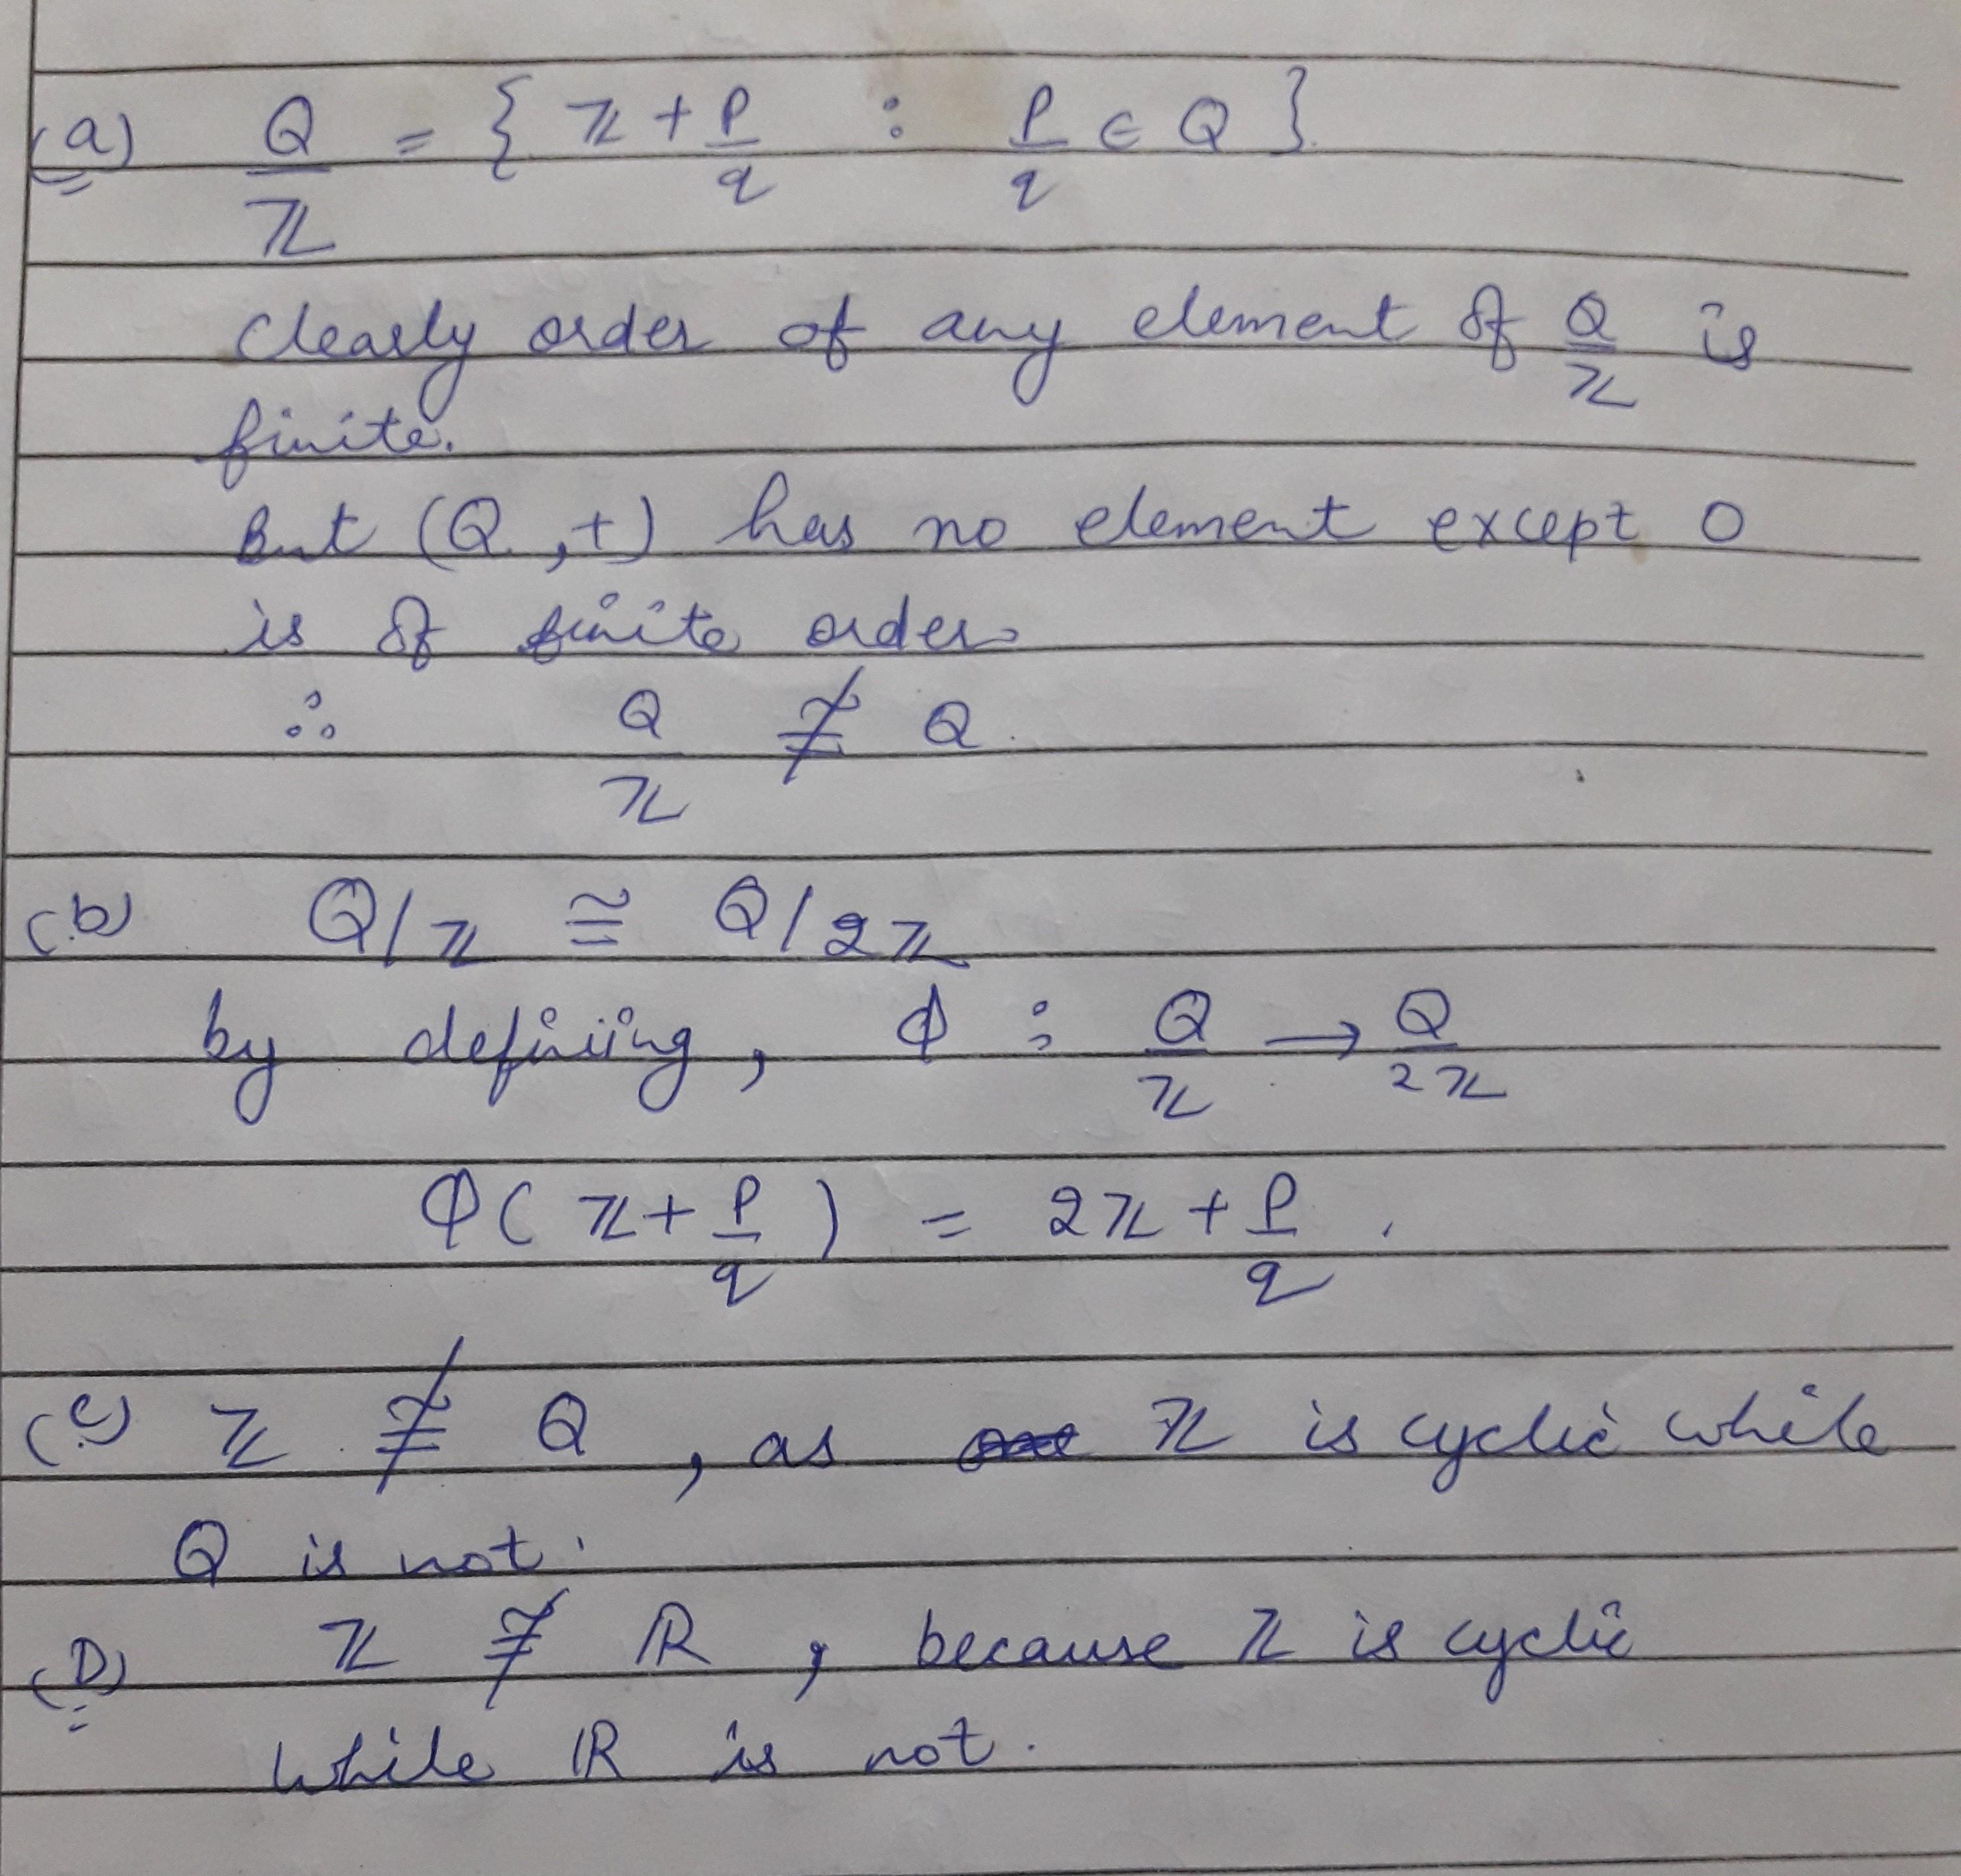 (a) Q/ℤ = { ℤ + p/q : p/q ∈ Q }
clearly order of any element of Q/ℤ is
finite.
But (Q, +) has no element except 0
is of finite order
∴ Q/ℤ ≇ Q
(b) Q/ℤ ≅ Q/2ℤ
by definiing, Φ : Q/ℤ → Q/2ℤ
Φ( ℤ + p/q ) = 2ℤ + p/q .
(c) ℤ ≇ Q , as ℤ is cyclic while
Q is not.
(D) ℤ ≇ ℝ , because ℤ is cyclic
while ℝ is not.